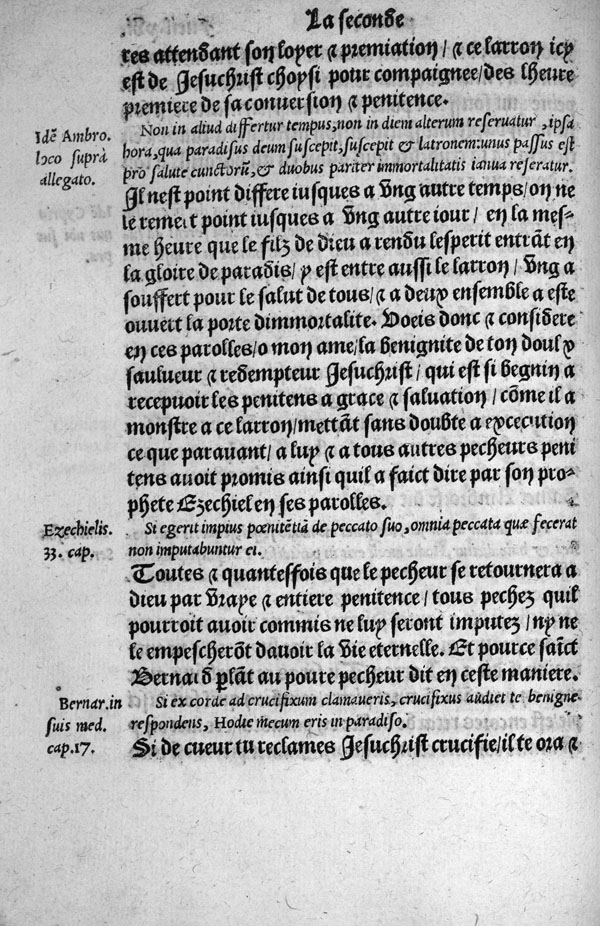 La seconde
res attendant son loyer & premiation/ & ce larron icy
est de Jesuchrist choysi pour compaignee/des lheure
premiere de sa conversion & penitence.
Idē Ambro.
loco suprà
allegato.
Non in aliud differtur tempus, non in diem alterum reseruatur, ipsa
hora, qua paradisus deum suscepit, suscepit & latronem: unus passus est
pro salute cunctorū, & duobus pariter immortalitatis ianua reseratur.
Il nest point differe iusques a vng autre temps/on ne
le remect point iusques a vng autre iour/ en la mes-
me heure que le filz de dieu a rendu lesperit entrāt en
la gloire de paradis/ y est entre aussi le larron/ vng a
souffert pour le salut de tous/& a deux ensemble a este
ouvert la porte dimmortalite. Voeis donc & considere
en ces parolles/o mon ame/la benignite de ton doulx
saulueur & redempteur Jesuchrist/ qui est si begnin a
recepuoir les penitens a grace & saluation/ cōme il a
monstre a ce larron/mettāt sans doubte a excecution
ce que parauant/a luy & a tous autres pecheurs peni
tens auoit promis ainsi quil a faict dire par son pro-
phete Ezechiel en ses parolles.
Ezechielis.
33. cap.
Si egerit impius pœnitētiā de peccato suo, omnia peccata quæ fecerat
non imputabuntur ei.
Toutes & quanteffois que le pecheur se retournera a
dieu par vraye & entiere penitence/ tous pechez quil
pourroit auoir commis ne luy seront imputez/ ny ne
le empescherōt dauoir la vie eternelle. Et pource saīct
Bernard plāt au poure pecheur dit en ceste maniere.
Bernar.in
suis med.
cap.17.
Si ex corde ad crucifixum clamaueris, crucifixus audiet te benigne
respondens, Hodie mecum eris in paradiso.
Si de cueur tu reclames Jesuchrist crucifie/il te ora &